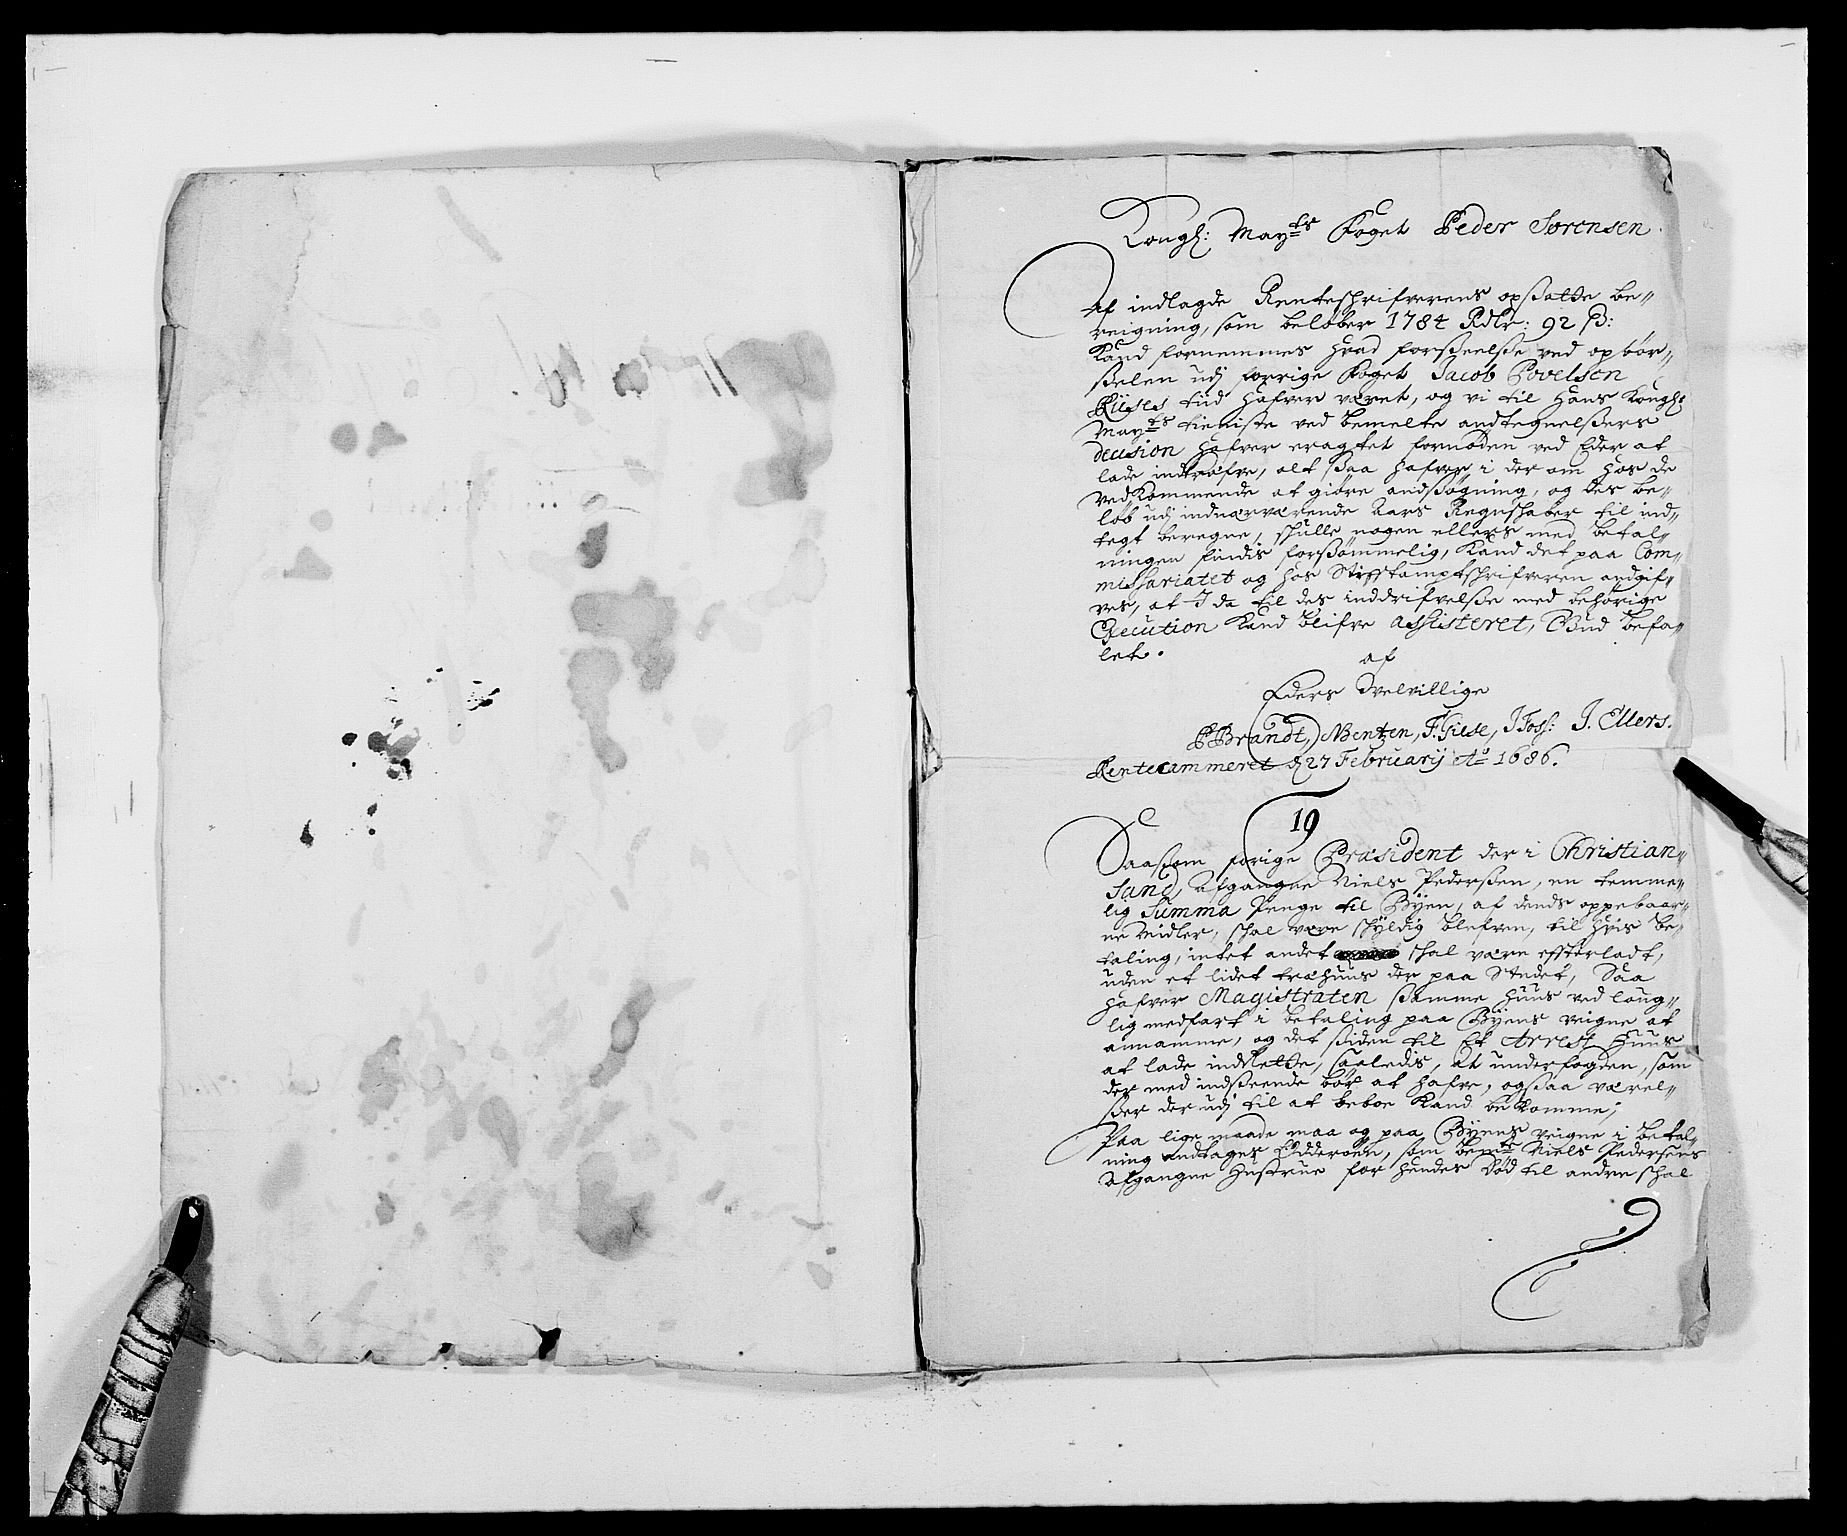 Kongl: May.ts Foget Peder Sørensen
Af indlagde Renteschrifverens opsatte be„
reigning, som beløber 1784 Rdlr: 92 ß:
Kand fornemmes hvad forseelse ved opbør„
selen udj forrige foget Jacob Povelsen
Riises tiid hafver været, og vi til Hans Kongl:
May.ts tieniste ved bemelte andtegnelsers
decision hafver eragtet fornøden ved Eder at
lade indkræfve, alt saa hafver i der om hos de
vedkommende at giøre andsøgning, og des be„
løb udj indnærværende Aars Regnskaber til ind„
tegt beregne, skulle nogen ellers med betal„
ningen findis forsømmelig, Kand det paa Com„
missariatet og hos Stifftamptschrifveren andgif„
ves, at I da til des inddrifvelse med behørige
Execution Kand blifve assisteret, Gud befa„
let.
af
Eders Velvillige
P Brandt, Mentzen, F. Giese, J Foss: J. Ellers.
Rentecammeret d 27 February Ao 1686.
19
Saasom forige Præsident der i Christian„
Sand, afgangne Niels Pedersen, en temme„
lig Summa Penge til Byen, af dends oppebaar„
ne Midler, schal være schyldig blefven, til hvis be„
taling, intet andet schal være effterladt,
uden et lidet træhuus der paa Stedet, Saa
hafver Magistraten samme huus ved loug„
lig medfart i betaling paa Byens veigne at
annamme, og det siden til Et Arrest Huus
at lade indrette, saaledis, at underfogden, som
der med indseende bør at hafve, ogsaa værel„
ser der udj til at beboe Kand bekomme;
Paa lige maade maa og paa Byens veigne i betal„
ning andtages Odderøen, som bem.te Niels Pedersens
afgangne Hustrue for hendes Død til andre schal